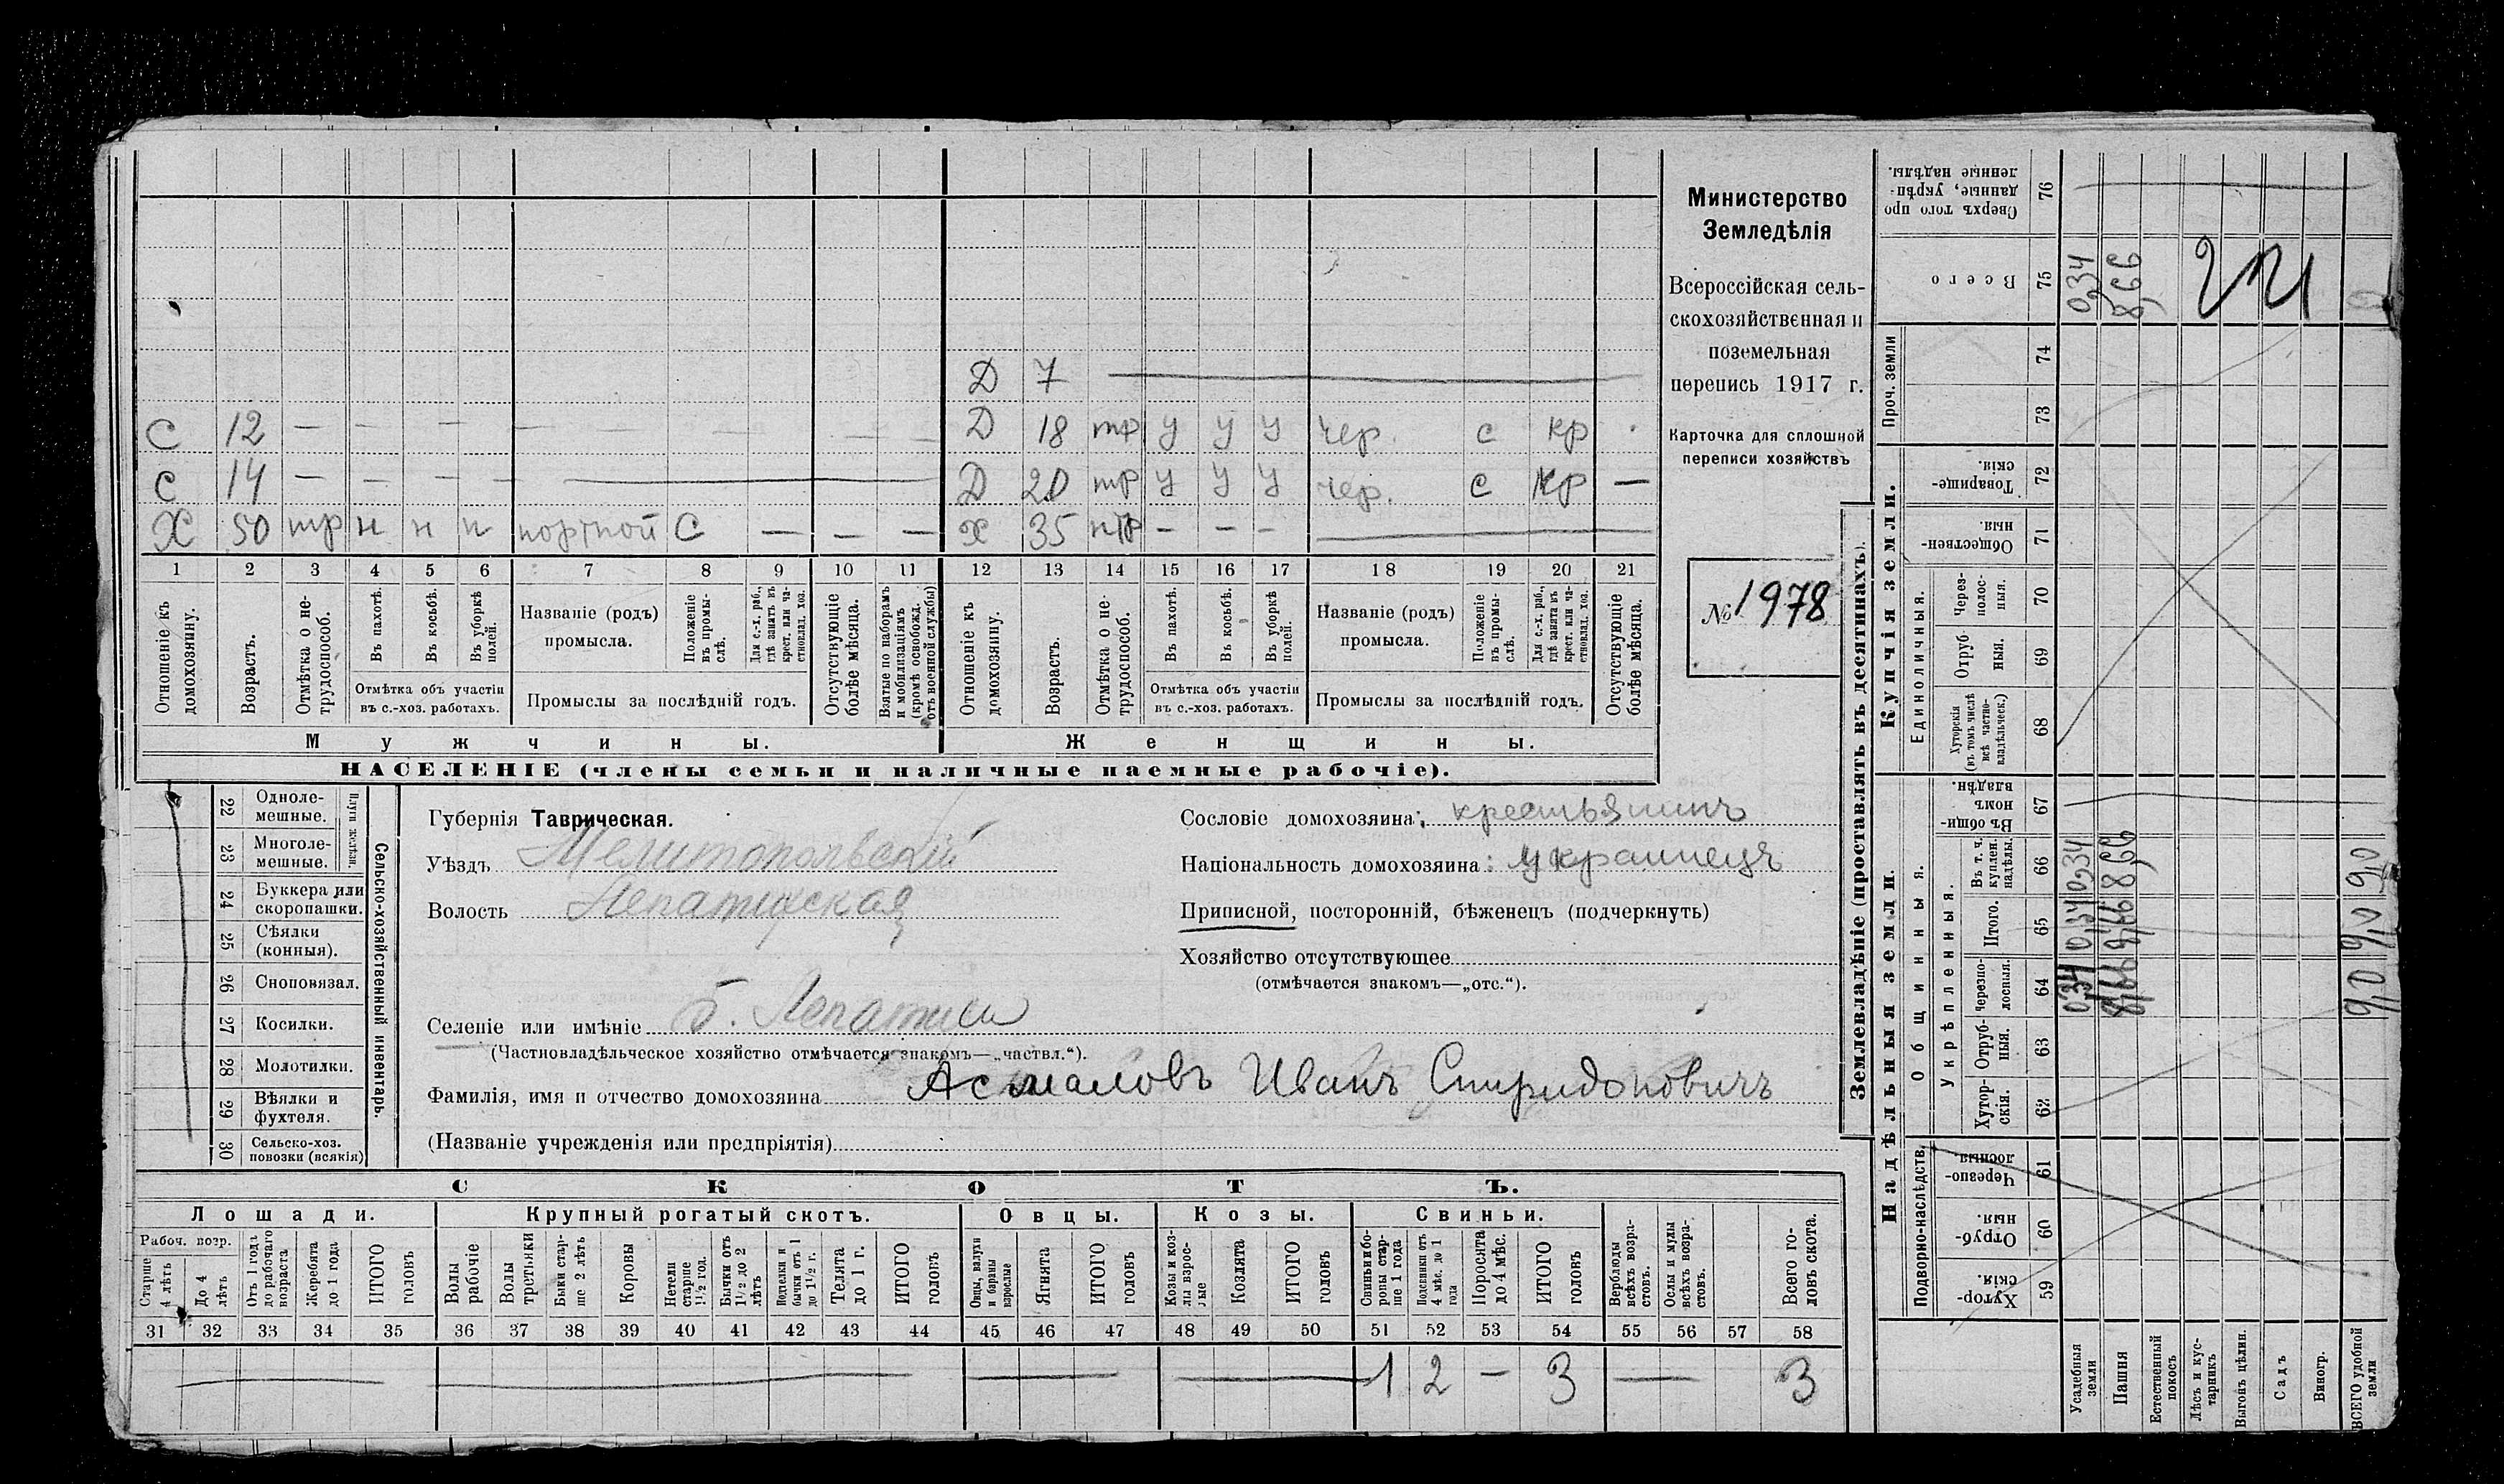 Д 7
С 12 — — — — — — — — — Д 18 тр у у у чер. с кр
С 14 — — — — Д 20 тр у у у чер. с кр —
Х 50 тр н н н портной С — — — Х 35 нтр — — —
1 2 3 4 5 6 7 8 9 10 11 12 13 14 15 16 17 18 19 20 21
Отношеніе къ домохозяину.
Возрастъ.
Отмѣтка о не-трудоспособ.
Въ пахотѣ.
Въ косьбѣ.
Въ уборкѣ полей.
Отмѣтка объ участіи
въ с.-хоз. работахъ.
Названіе (родъ)
промысла.
Положеніе въ промы-слѣ.
Для с.-х. раб., гдѣ занятъ въ крест. или ча-стновлад. хоз.
Промыслы за послѣдній годъ.
Отсутствующіе болѣе мѣсяца.
Взятые по наборамъ и мобилизаціямъ (кромѣ освобожд. отъ военной службы)
Отношеніе къ домохозяину.
Возрастъ.
Отмѣтка о не-трудоспособ.
Въ пахотѣ.
Въ косьбѣ.
Въ уборкѣ полей.
Отмѣтка объ участіи
въ с.-хоз. работахъ.
Названіе (родъ)
промысла.
Положеніе въ промы-слѣ.
Для с.-х. раб., гдѣ занята въ крест. или ча-стновлад. хоз.
Промыслы за послѣдній годъ.
Отсутствующіе болѣе мѣсяца.
Мужчины.
Женщины.
НАСЕЛЕНІЕ (члены семьи и наличные наемные рабочіе).
Министерство
Земледѣлія
Всероссійская сель-
скохозяйственная и
поземельная
перепись 1917 г.
Карточка для сплошной
переписи хозяйствъ
№ 1978
22 Одноле-мешные.
23 Многоле-мешные.
24 Буккера или скоропашки.
25 Сѣялки (конныя).
26 Сноповязал.
27 Косилки.
28 Молотилки.
29 Вѣялки и фухтеля.
30 Сельско-хоз. повозки (всякія)
Сельско-хозяйственный инвентарь.
Губернія Таврическая.
Уѣздъ Мелитопольскій
Волость Лепатихская
Селеніе или имѣніе Б. Лепатиха
(Частновладѣльческое хозяйство отмѣчается знакомъ—„частвл.“).
Фамилія, имя и отчество домохозяина Асмаловъ Иванъ Спиридоновичъ
(Названіе учрежденія или предпріятія)
Сословіе домохозяина: крестьянинъ
Національность домохозяина: украинецъ
Приписной, посторонній, бѣженецъ (подчеркнуть)
Хозяйство отсутствующее
(отмѣчается знакомъ—„отс.“).
СКОТЪ.
Лошади.
Крупный рогатый скотъ.
Овцы.
Козы.
Свиньи.
Рабоч. возр.
Старше 4 лѣтъ
До 4 лѣтъ
Отъ 1 года до рабочаго возраста
Жеребята до 1 года
ИТОГО головъ
Волы рабочіе
Волы третьяки
Быки стар-ше 2 лѣтъ
Коровы
Нетели старше 1½ год.
Бычки отъ 1½ до 2 лѣтъ
бычки отъ 1 до 1½ г.
Телята до 1 г.
ИТОГО головъ
Овцы, валухи и бараны взрослые
Ягнята
ИТОГО головъ
Козы и коз-лы взрос-лые
Козлята
ИТОГО головъ
Свиньи и бо-ровы стар-ше 1 года
Подсвинки отъ 4 мѣс. до 1 года
Поросята до 4 мѣс.
ИТОГО головъ
Верблюды всѣхъ возра-стовъ.
Ослы и мулы всѣхъ возра-стовъ.
Всего го-ловъ скота.
31 32 33 34 35 36 37 38 39 40 41 42 43 44 45 46 47 48 49 50 51 52 53 54 55 56 57 58
1 2 — 3 — 3
Землевладѣніе (проставлять въ десятинахъ).
Надѣльныя земли.
Купчія земли.
Проч. земли
Подворно-наслѣдств.
Общинныя.
Укрѣпленныя.
Единоличныя.
Сверхъ того про-данные, укрѣп-ленные надѣлы. 76
Всего 75 0,34 8,66
74
73
Товарище-скія. 72
Обществен-ныя. 71
Через-полос-ныя. 70
Отруб-ныя. 69
Хуторскія (въ томъ числѣ всѣ частно-владѣльческ.) 68
Въ общи-номъ владѣн. 67
Въ т. ч. куплен. надѣлы. 66 0,34 8,66 9,0
Итого. 65 0,34 8,66 9,0
Черезпо-лосныя. 64 0,34 8,66 9,0
Отруб-ныя. 63
Хутор-скія. 62
Черезпо-лосныя 61
Отруб-ныя. 60
Хутор-скія. 59
Усадебныя земли
Пашня
Естественный покосъ
Лѣсъ и кус-тарникъ
Выгонъ цѣлин.
Садъ
Виногр.
ВСЕГО удобной земли